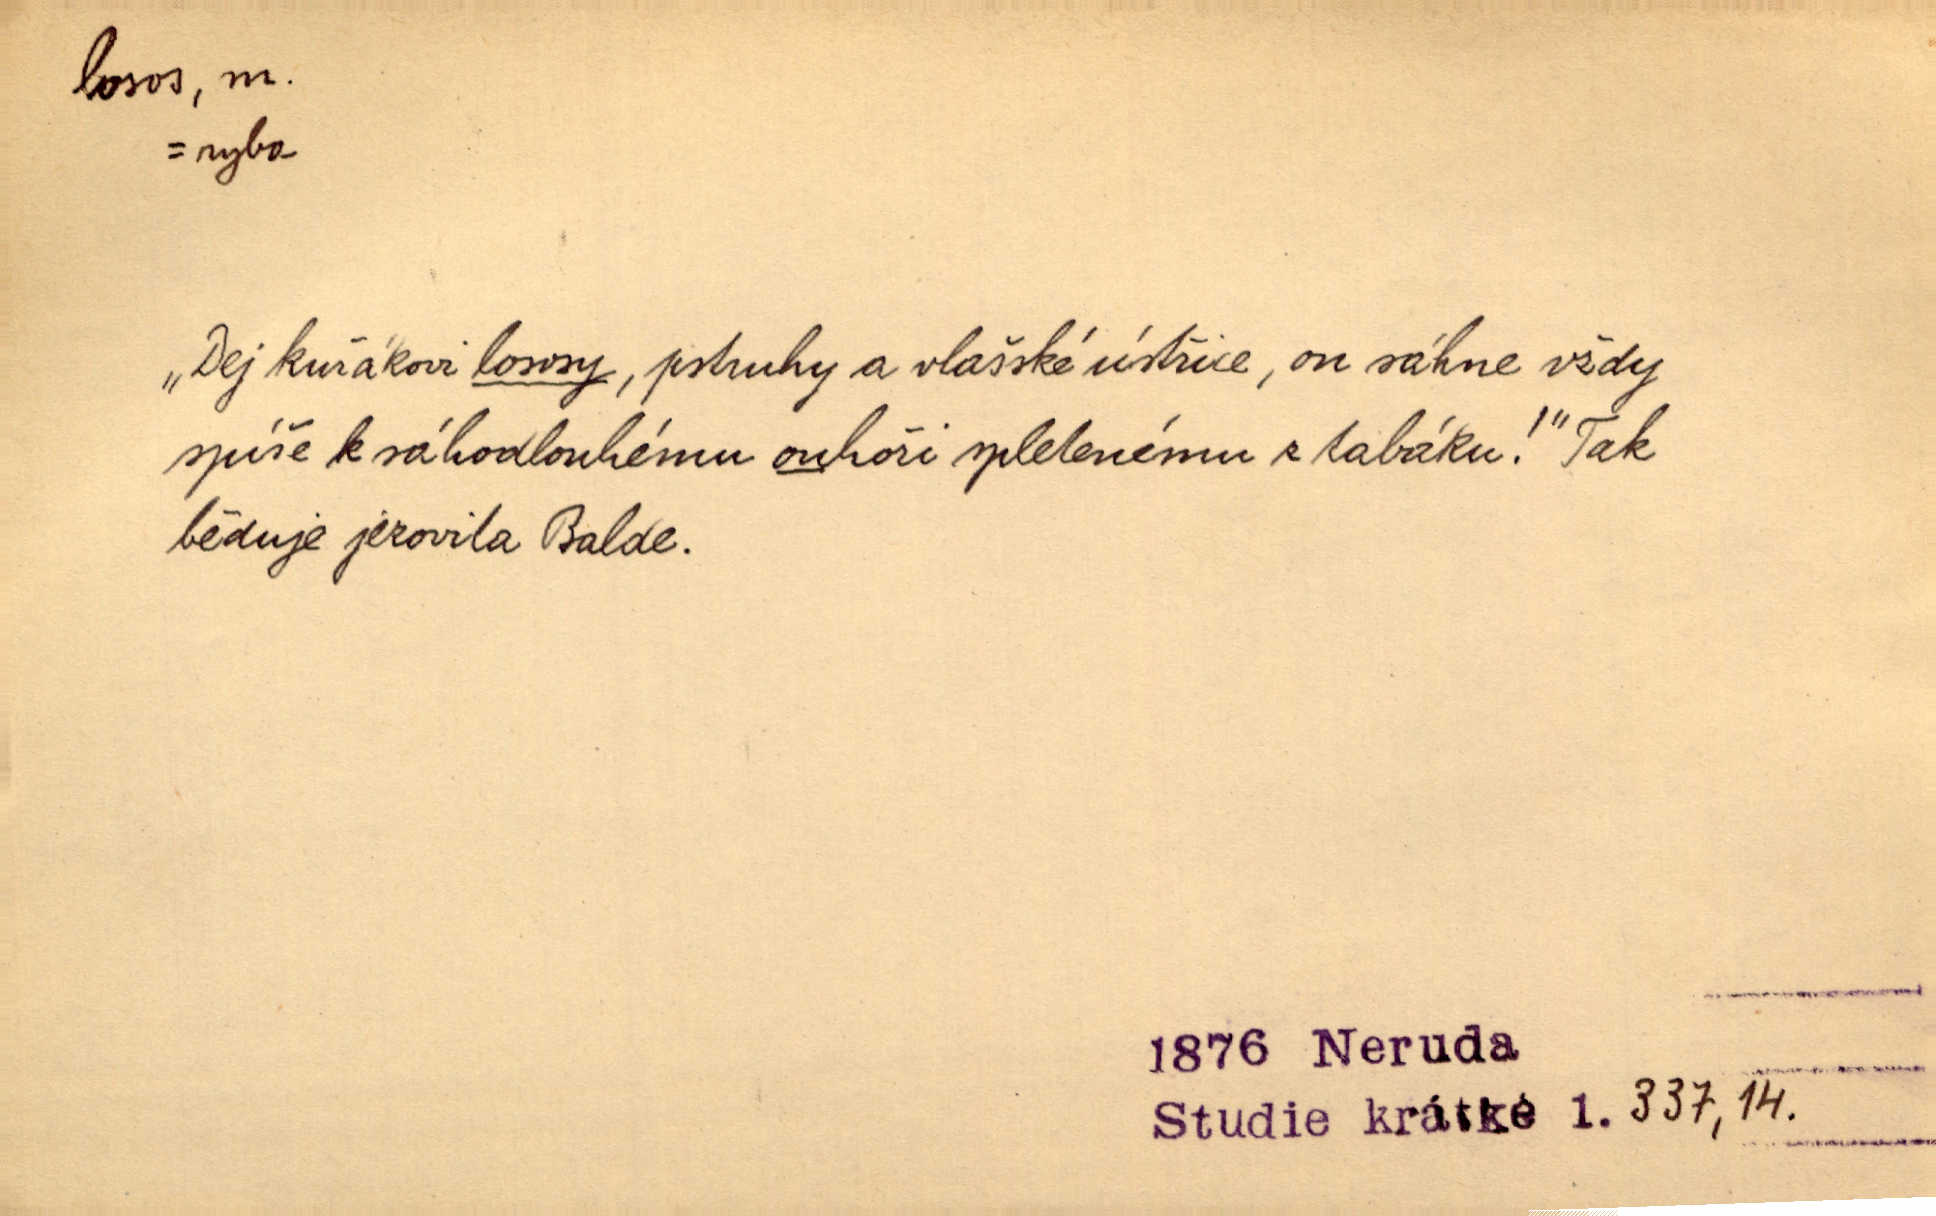 losos, m.
= ryba
„Dej kuřákovi lososy, pstruhy a vlašské ústřice, on sáhne vždy
spíše k sáhodlouhému ouhoři spletenému z tabáku!" Tak
běduje jezovita Balde.
1876 Neruda
Studie krátké 1. 337, 14.